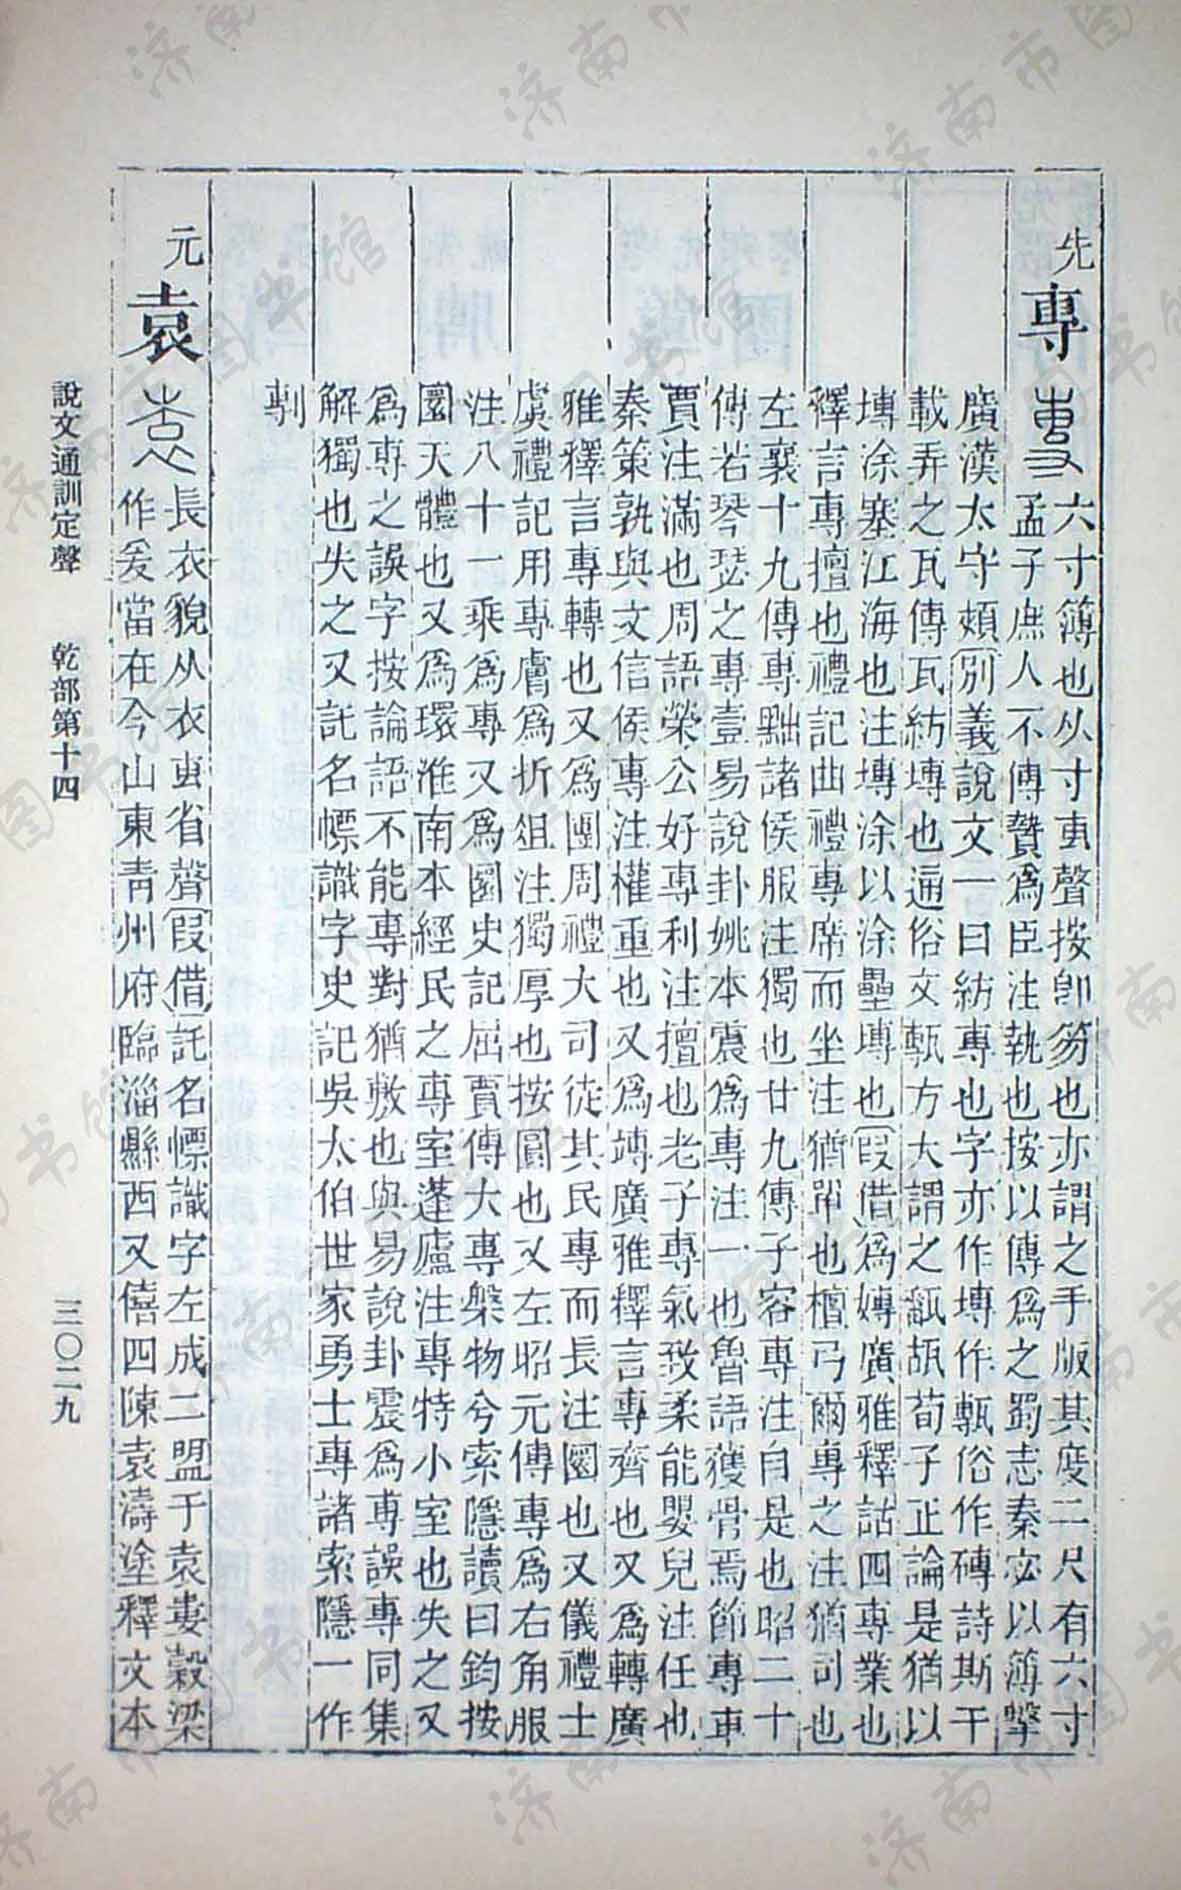 先
專
六寸簿也从寸叀聲按卽笏也亦謂之手版其度二尺有六寸
孟子庶人不傳贄爲臣注執也按以傳爲之蜀志秦宓以簿擊
廣漢太守頰別義說文一曰紡專也字亦作塼作甎俗作磚詩斯干
載弄之瓦傳瓦紡塼也通俗文甎方大謂之㼾瓳荀子正論是猶以
塼涂塞江海也注塼涂以涂壘塼也叚借爲嫥廣雅釋詁四專業也
釋言專擅也禮記曲禮專席而坐注猶單也檀弓爾專之注猶司也
左襄十九傳專黜諸侯服注獨也廿九傳子容專注自是也昭二十
傳若琴瑟之專壹易說卦姚本震爲專注一也魯語獲骨焉節專車
賈注滿也周語榮公好專利注擅也老子專氣致柔能嬰兒注任也
秦策孰與文信侯專注權重也又爲竱廣雅釋言專齊也又爲轉廣
雅釋言專轉也又爲團周禮大司徒其民專而長注圜也又儀禮士
虞禮記用專膚爲折俎注獨厚也按圓也又左昭元傳專爲右角服
注八十一乘爲專又爲圜史記屈賈傳大專槃物兮索隱讀曰鈞按
圜天體也又爲環淮南本經民之專室蓬廬注專特小室也失之又
爲專之誤字按論語不能專對猶敷也與易說卦震爲旉誤專同集
解獨也失之又託名幖識字史記吳太伯世家勇士專諸索隱一作
剸
元
袁
長衣貌从衣叀省聲叚借託名幖識字左成二盟于袁婁穀梁
作爰當在今山東靑州府臨淄縣西又僖四陳袁濤塗釋文本
說文通訓定聲 乾部第十四 三〇二九